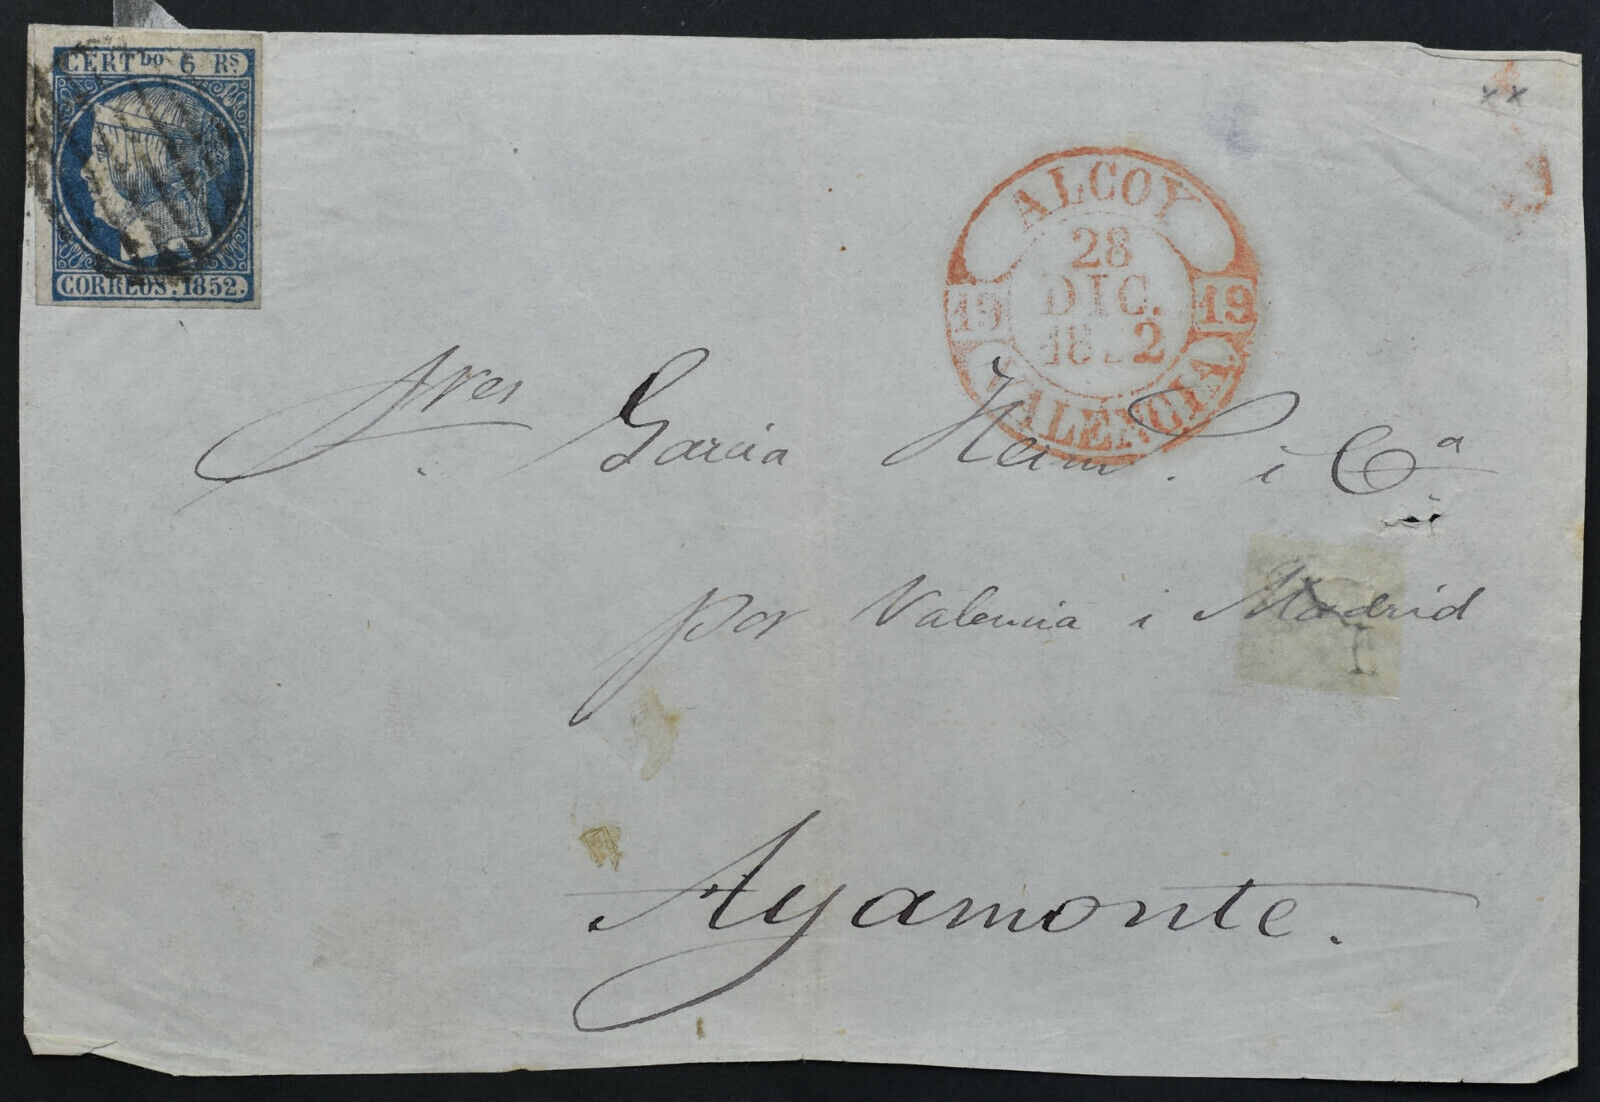 CERTDO 6 RS
CORREOS. 1852.
ALCOY
28
DIC.
19 19
18 2
VALENCIA
Sres Garcia i Ca
por Valencia i Madrid
Ayamonte.